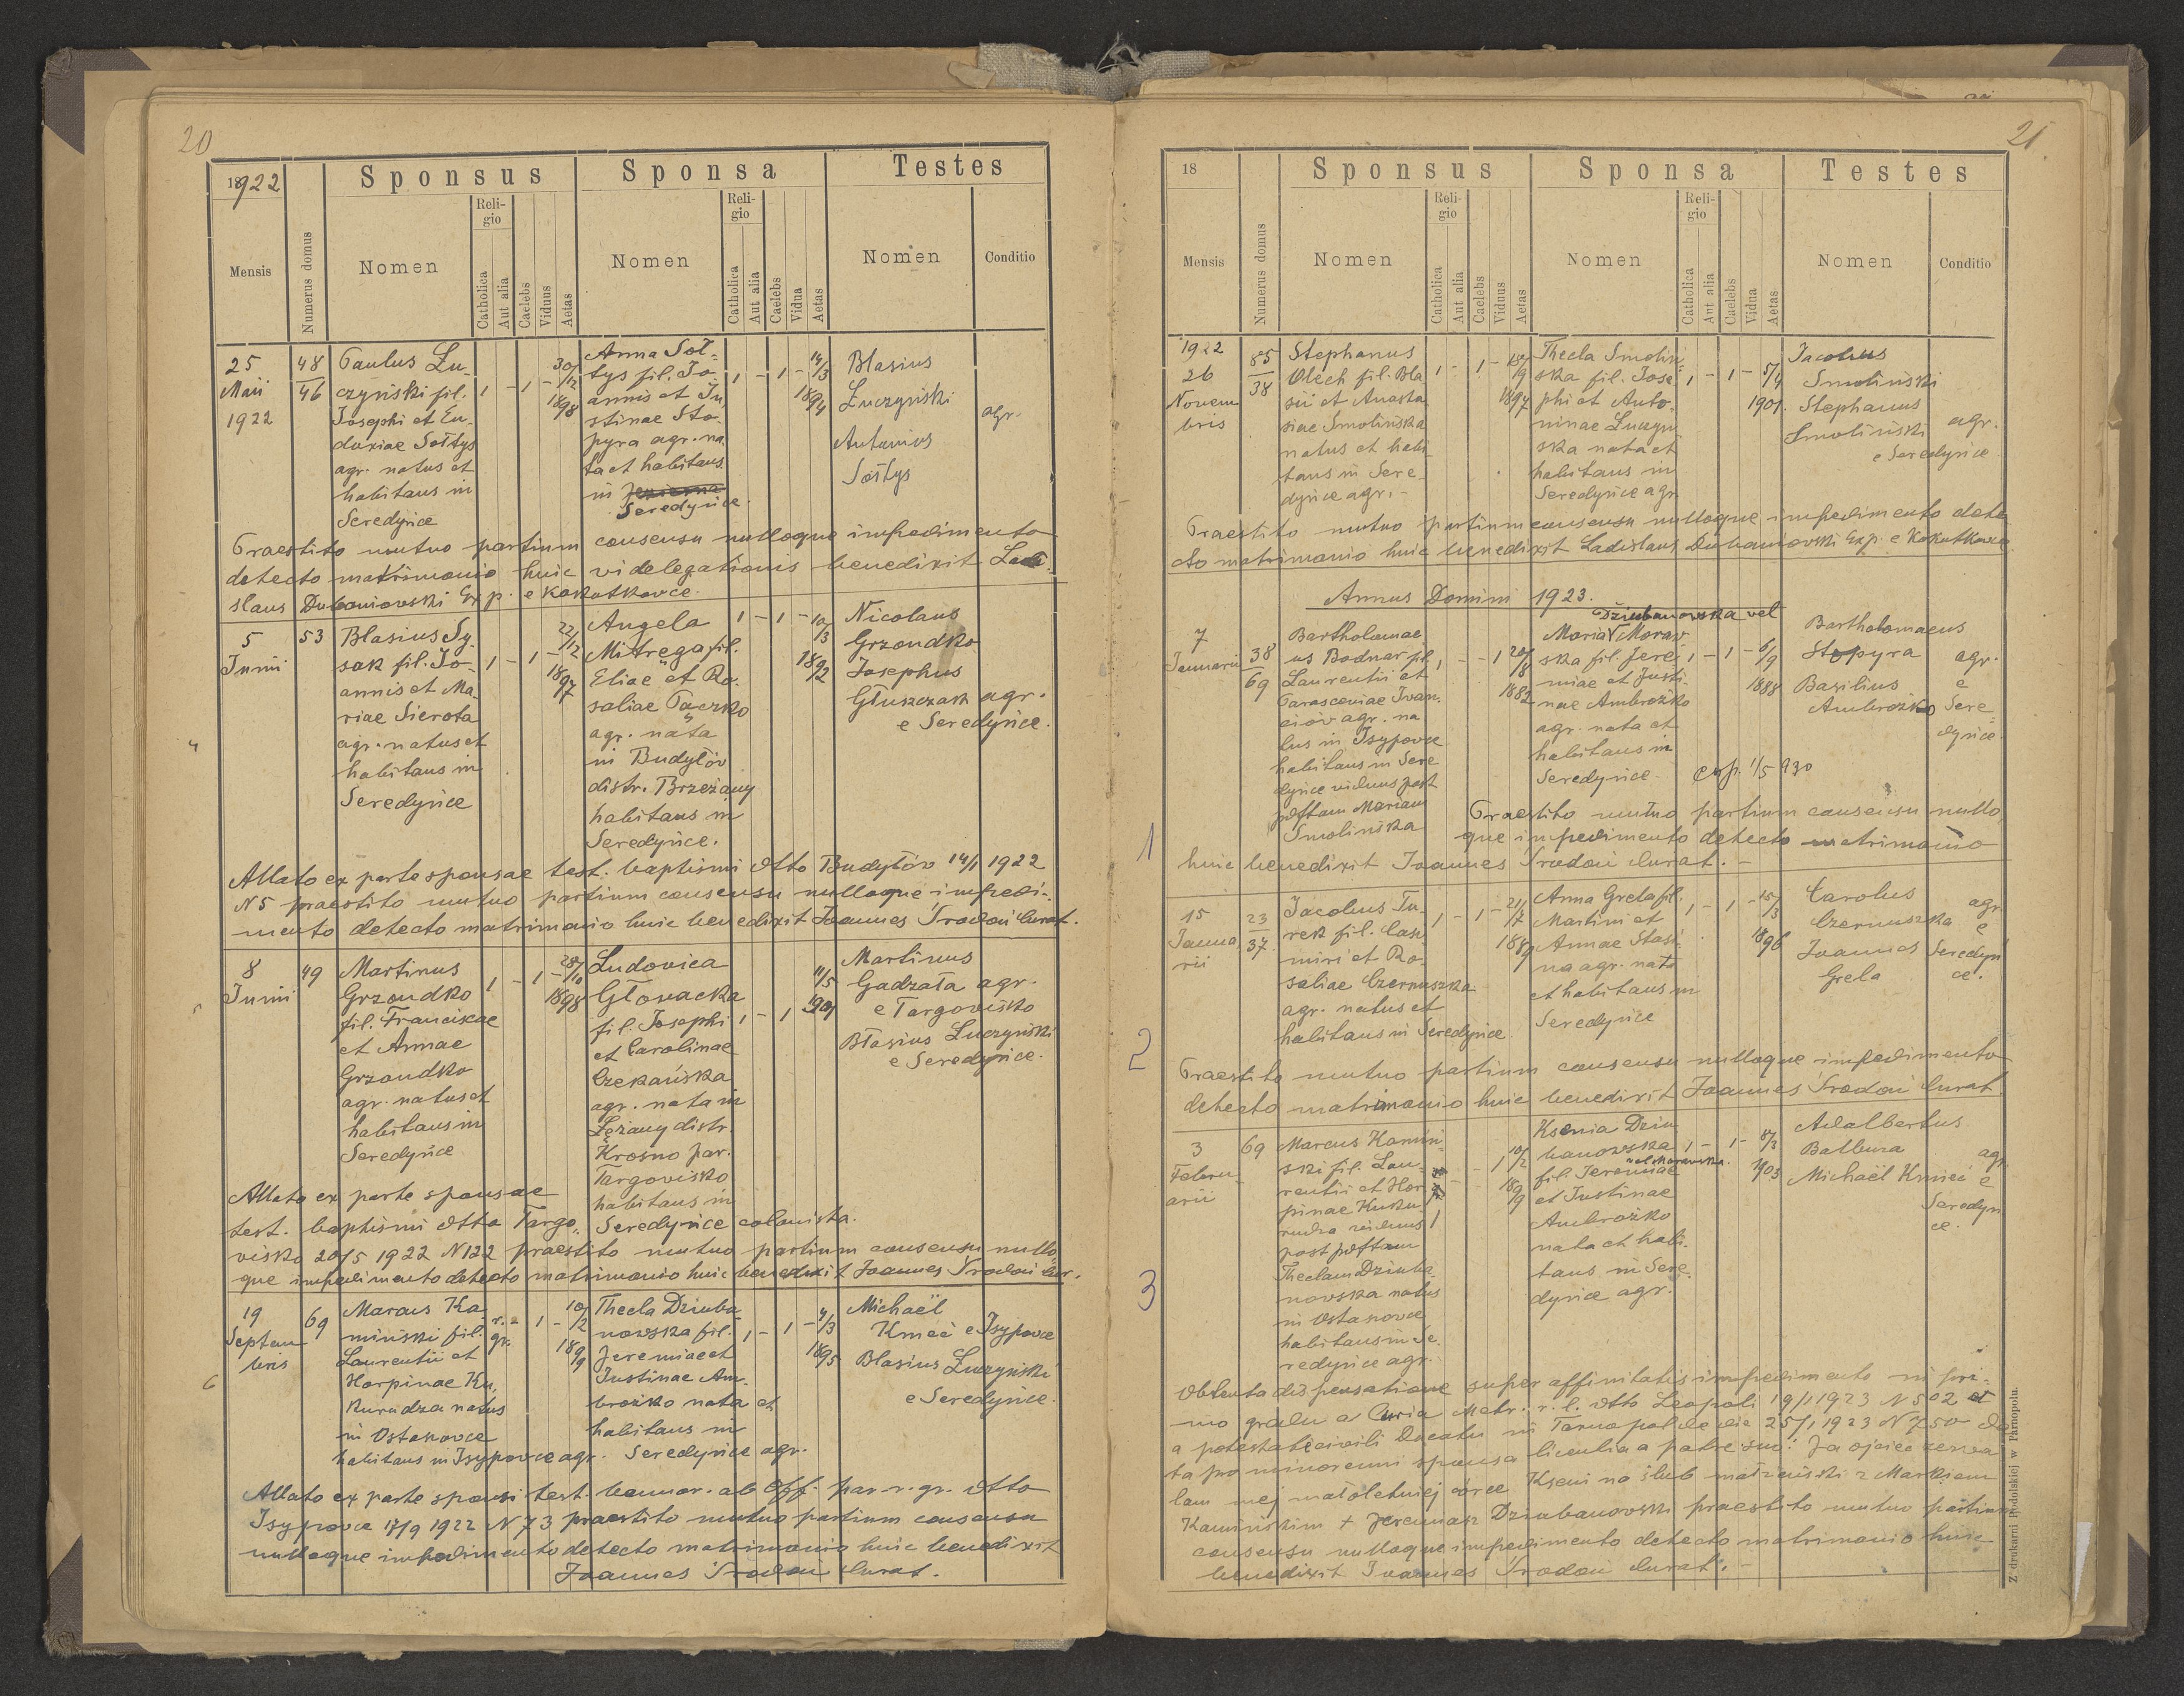 20
1922
Sponsus
Sponsa
Testes
Mensis
Numerus domus
Nomen
Religio
Catholica
Aut alia
Caelebs
Viduus
Aetas
Nomen
Religio
Catholica
Aut alia
Caelebs
Vidua
Aetas
Nomen
Conditio
25
Maii
1922
48
46
Paulus Łu-
czyński fil.
Josephi et Eu-
doxiae Sołtys
agr. natus et
habitans in
Seredyńce
1 - 1 -
30/12
1898
Anna Soł-
tys fil. Jo-
annis et Ju
stinae Sto-
pyra agr. na
ta et habitans
in Jezierna
Seredyńce.
1 - 1 -
14/3
1894
Blasius
Łuczyński
Antonius
Sołtys
agr.
Praestito mutuo partium consensu nulloque impedimento
detecto matrimonio huic vi delegationis benedixit Ladi-
slaus Dubaniowski Exp. e Kokutkowce.
5
Junii
53
Blasius Sy-
sak fil. Jo-
annis et Ma-
riae Sierota
agr. natus et
habitans in
Seredyńce
1 - 1 -
22/12
1897
Angela
Mitręga fil.
Eliae et Ro-
saliae Pączko
agr. nata
in Budyłów
distr. Brzeżany
habitans in
Seredyńce.
1 - 1 -
10/3
1892
Nicolaus
Grzondko
Josephus
Głuszczak agr.
e Seredyńce.
Allato ex parte sponsae test. baptismi dtto Budyłów 14/1 1922
N 5 praestito mutuo partium consensu nulloque impedi-
mento detecto matrimonio huic benedixit Joannes Środoń Curat.
8
Junii
49
Martinus
Grzondko
fil. Franciscae
et Annae
Grzondko
agr. natus et
habitans in
Seredyńce
1 - 1 -
28/10
1898
Ludovica
Głowacka
fil. Josephi
et Carolinae
Czekańska
agr. nata in
Łężany distr.
Krosno par.
Targowisko
habitans in
Seredyńce colonista.
1 - 1
11/5
Martinus
Gadzała agr.
e Targowisko
Błasius Łuczyński
e Seredyńce.
Allato ex parte sponsae
test. baptismi dtto Targo-
wisko 20/5 1922 N 122 praestito mutuo partium consensu nullo
que impedimento detecto matrimonio huic benedixit Joannes Środoń Cur.
6
19
Septem
bris
69
Marcus Ka
miński fil.
Laurentii et
Horpinae Ku-
kurudza natus
in Ostapowce
habitans in Isypowce agr.
r. gr.
1 -
10/2
1899
Thecla Dziuba
nowska fil.
Jeremiae et
Justinae Am-
brożko nata et
habitans in
Seredyńce agr.
1 - 1
4/3
1895
Michaël
Kmieć e Isypowce
Blasius Łuczyński
e Seredyńce.
Allato ex parte sponsi test. bannor. ab Off. par. r. gr. dtto
Isypowce 17/9 1922 N 73 praestito mutuo partium consensu
nulloque impedimento detecto matrimonio huic benedixit
Joannes Środoń Curat.
21.
18
Sponsus
Sponsa
Testes
Mensis
Numerus domus
Nomen
Religio
Catholica
Aut alia
Caelebs
Viduus
Aetas
Nomen
Religio
Catholica
Aut alia
Caelebs
Vidua
Aetas
Nomen
Conditio
1922
26
Novem
bris
85
38
Stephanus
Olech fil. Bla
sii et Anasta
siae Smolińska
natus et habi
tans in Sere-
dyńce agr. -
1 - 1 -
1897
Thecla Smoliń
ska fil. Jose
phi et Anto-
ninae Łuczyń
ska nata et
habitans in
Seredyńce agr
1 - 1 -
5/4
1901.
Jacobus
Smoliński
Stephanus
Smoliński
e Seredyńce.
agr.
Praestito mutuo partium consensu nulloque impedimento dete
cto matrimonio huic benedixit Ladislaus Dubaniowski Exp. e Kokutkowce
Annus Domini 1923.
1
7
Januarii
38
69
Bartholomae
us Bodnar fil.
Laurentii et
Parasceviae Iwan-
ciów agr. na
tus in Isypowce
habitans in Sere
dyńce viduus post
pdftam Mariam
Smolińska
1 - - 1
20/8
1882
Dziubanowska vel
Maria Moraw
ska fil. Jere
miae et Justi-
nae Ambrożko
agr. nata et
habitans in
Seredyńce.
1 - 1 -
6/9
1888
Bartholomaeus
Stopyra
Basilius
Ambrożko
agr.
e
Sere
dyńce.
exp. 1/5 930
Praestito mutuo partium consensu nullo
que impedimento detecto matrimonio
huic benedixit Joannes Środoń Curat. -
2
15
Janua
rii
23
37
Jacobus Tu-
rek fil. Casi-
miri et Ro-
saliae Czernuszka
agr. natus et
habitans in Seredyńce.
1 - 1 -
21/7
1889
Anna Grela fil.
Martini et
Annae Stasi-
na agr. nata
et habitans in
Seredyńce
1 - 1 -
15/3
1896
Carolus
Czernuszka
Joannes
Grela
agr
e
Seredyń
ce.
Praestito mutuo partium consensu nulloque impedimento
detecto matrimonio huic benedixit Joannes Środoń Curat
3
3
Febru
arii
69
Marcus Kamiń
ski fil. Lau-
rentii et Hor
pinae Kuku
rudza viduus
post pdftam
Theclam Dziuba-
nowska natus
in Ostapowce
habitans in Se-
redyńce agr.
- 1
10/2
1899
Ksenia Dziu
banowska
vel Morawska
fil. Jeremiae
et Justinae
Ambrożko
nata et habi-
tans in Sere-
dyńce agr.
1 - 1 -
8/3
1903
Adalbertus
Balbuza
Michaël Kmieć
agr
e
Seredyń
ce.
Obtenta dispensatione super affinitatis impedimento in pri-
mo gradu a Curia Metr. r. l. dtto Leopoli 19/1 1923 N 502 et
a potestate civili Ducatu in Tarnopol de die 25/1 1923 N 750 da
ta pro minorenni sponsa licentia a patre suo: Ja ojciec zezwa
lam mej małoletniej córce Kseni na ślub małżeński z Markiem
Kamińskim + Jeremiasz Dziubanowski praestito mutuo partium
consensu nulloque impedimento detecto matrimonio huic
benedixit Joannes Środoń Curat. -
Z drukarni Podolskiej w Tarnopolu.